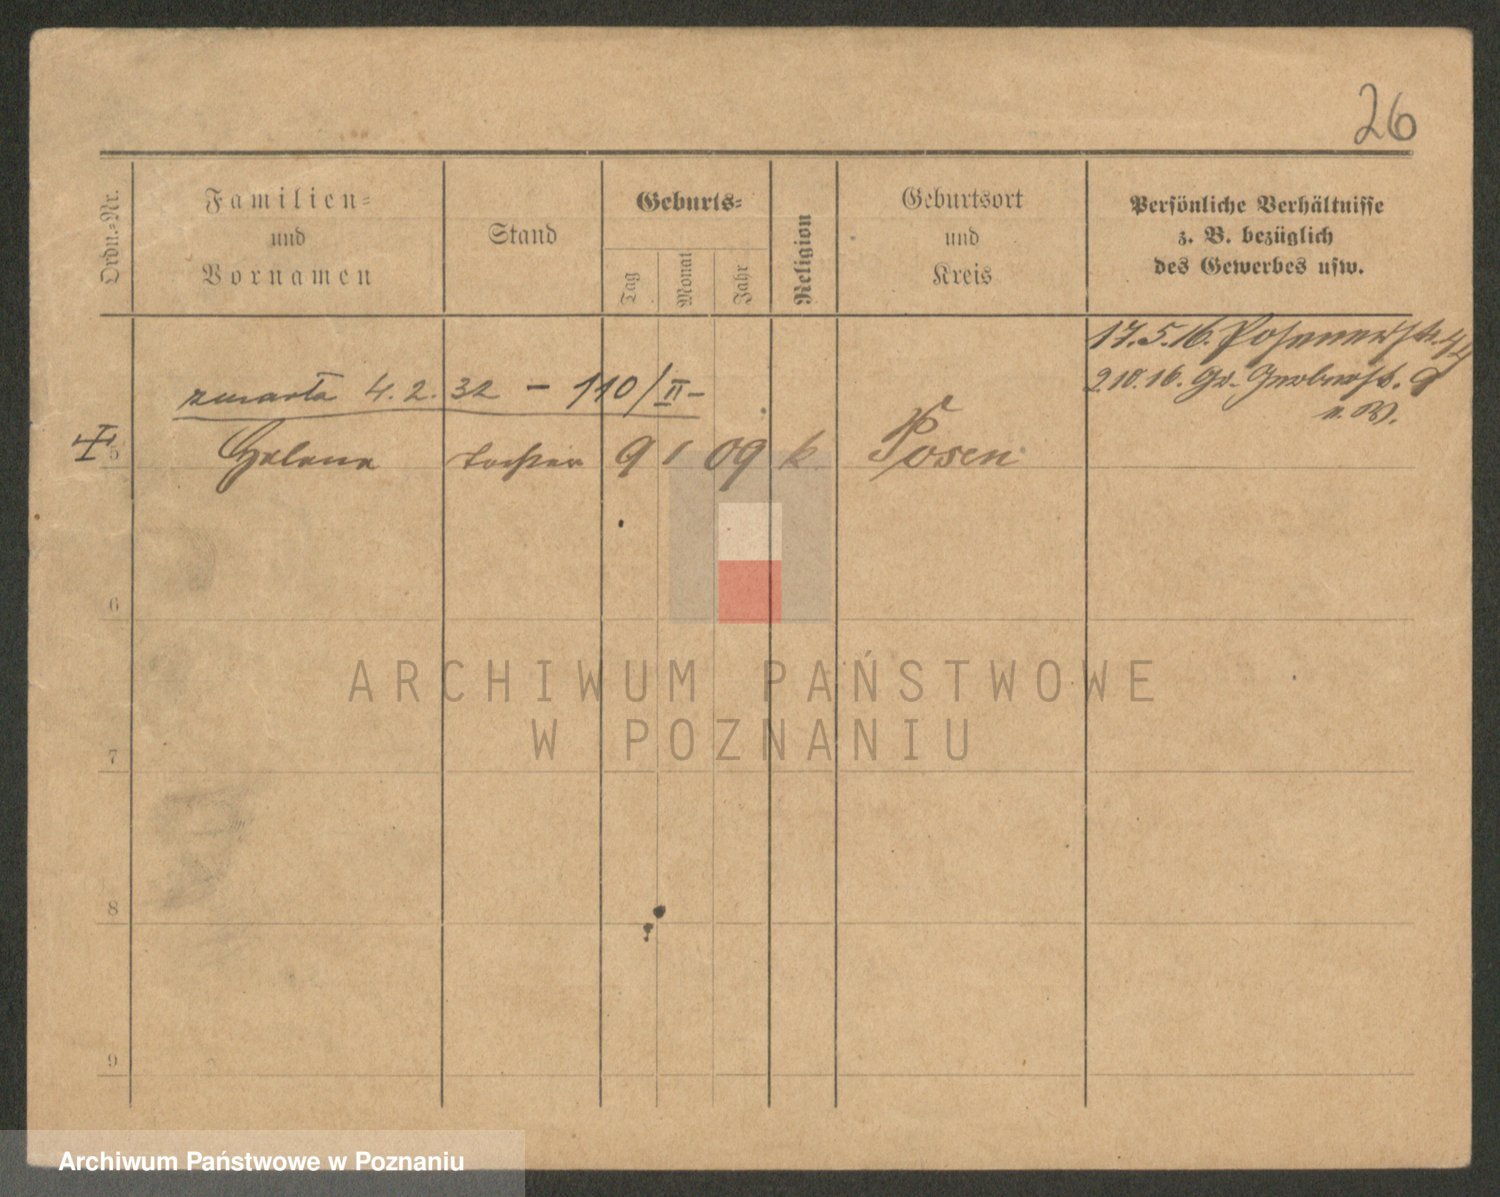 26
Ordn.-Nr.
Familien-
und
Vornamen
Stand
Geburts-
Tag
Monat
Jahr
Religion
Geburtsort
und
Kreis
Persönliche Verhältnisse
z. B. bezüglich
des Gewerbes usw.
17.5.16. Posenerstr. 44
2.10.16. Gr. 9
u. W.
zmarła 4.2.32 – 110/II –
5 Helene Tochter 9 1 09 k. Posen
6
7
8
9
ARCHIWUM PAŃSTWOWE
W POZNANIU
Archiwum Państwowe w Poznaniu